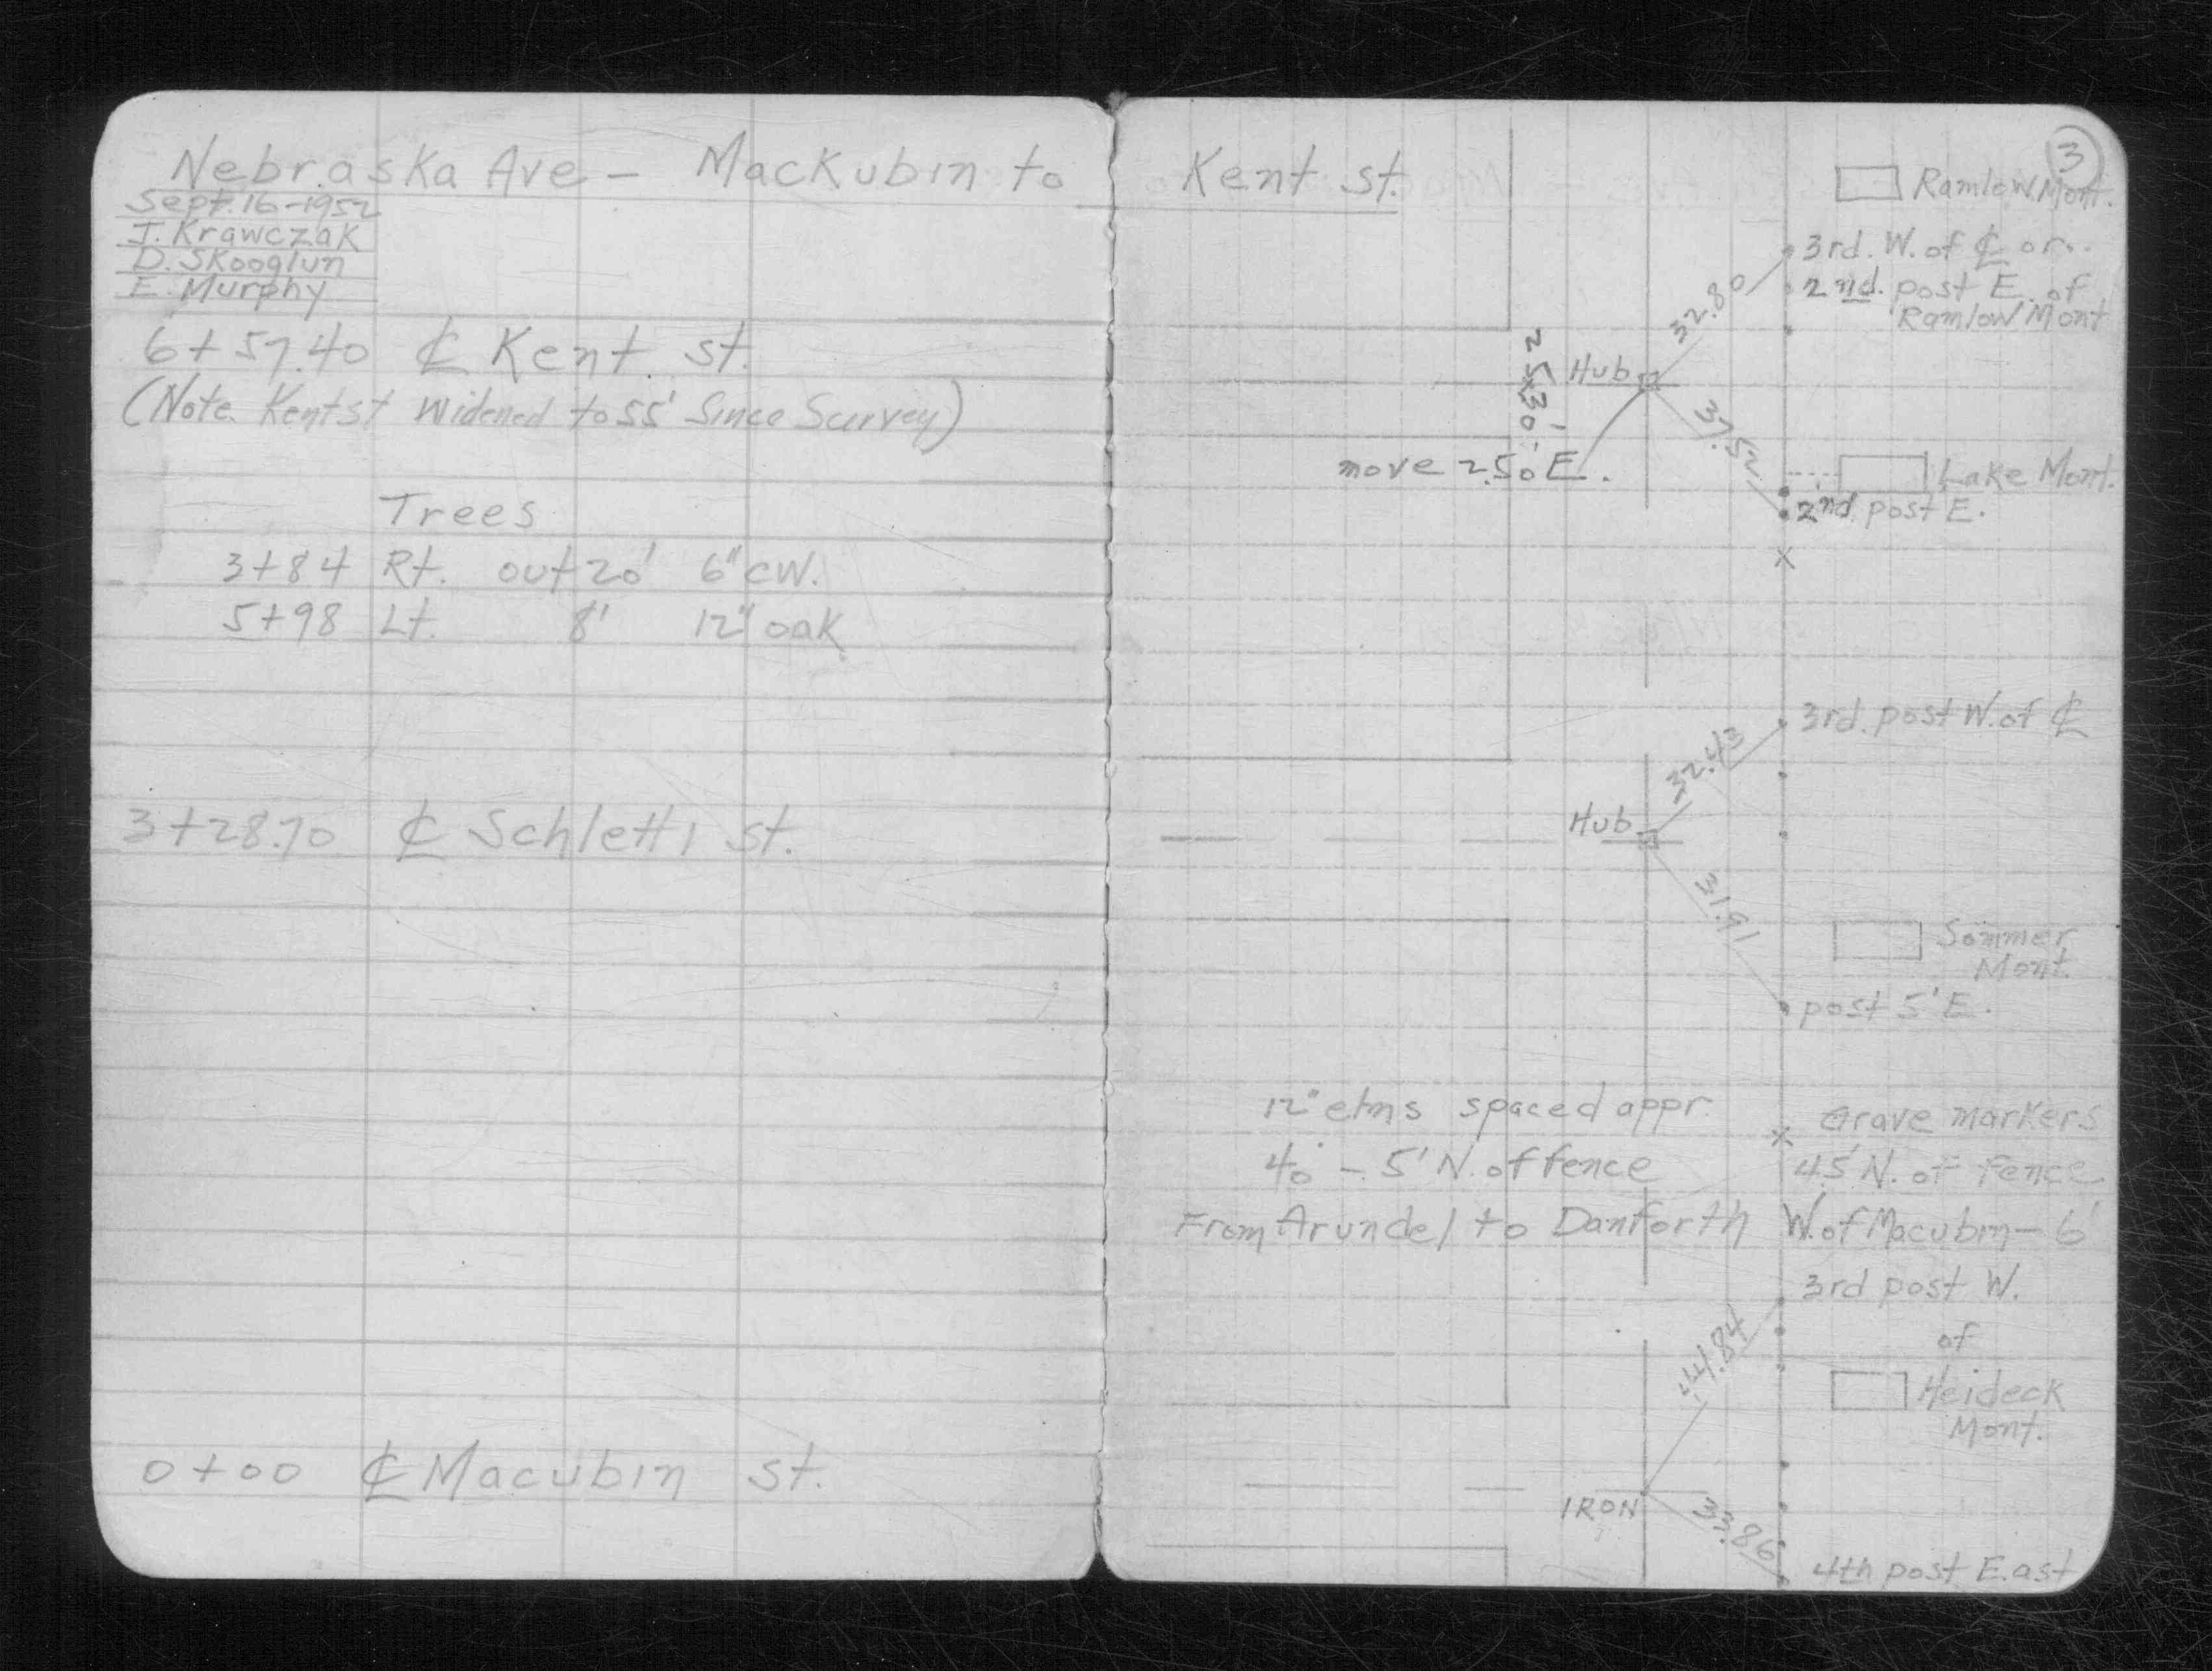 Nebraska Ave - Mackubin to Kent st.
Sept. 16-1952
J. Krawczak
D. Skooglun
E. Murphy
6+57.40 ℄ Kent st.
(Note Kent st widened to 55' Since Survey)
Trees
3+84 Rt. out 20' 6" CW.
5+98 Lt. 8' 12" oak
3+28.70 ℄ Schletti st.
0+00 ℄ Macubin st.
3
Ramlow Mont.
3rd. W. of ℄ or..
2nd. post E. of
Ramlow Mont
32.80
Hub
25.30'
37.52
move 2.50 E.
Lake Mont.
2nd post E.
3rd. post W. of ℄
32.43
Hub
31.91
Sommer
Mont.
post 5' E.
12" elms spaced appr.
40' - 5' N. of fence
From Arundel to Danforth
Grave markers
45' N. of fence
W. of Macubin - 6'
3rd post W.
of
Heideck
Mont.
44.84
IRON
33.86
4th post E.ast